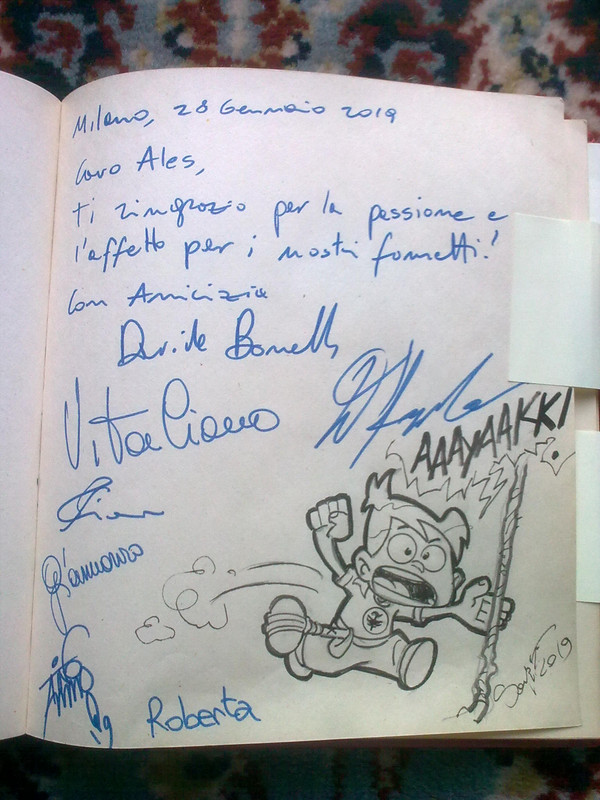 Milano, 28 Gennaio 2019
Caro Ales,
ti ringrazio per la passione e
l'affetto per i nostri fumetti!
Con Amicizia
Davide Bonelli
Vitaliano
AAAYAAKKI
Gennaro
2019
'19
Roberta